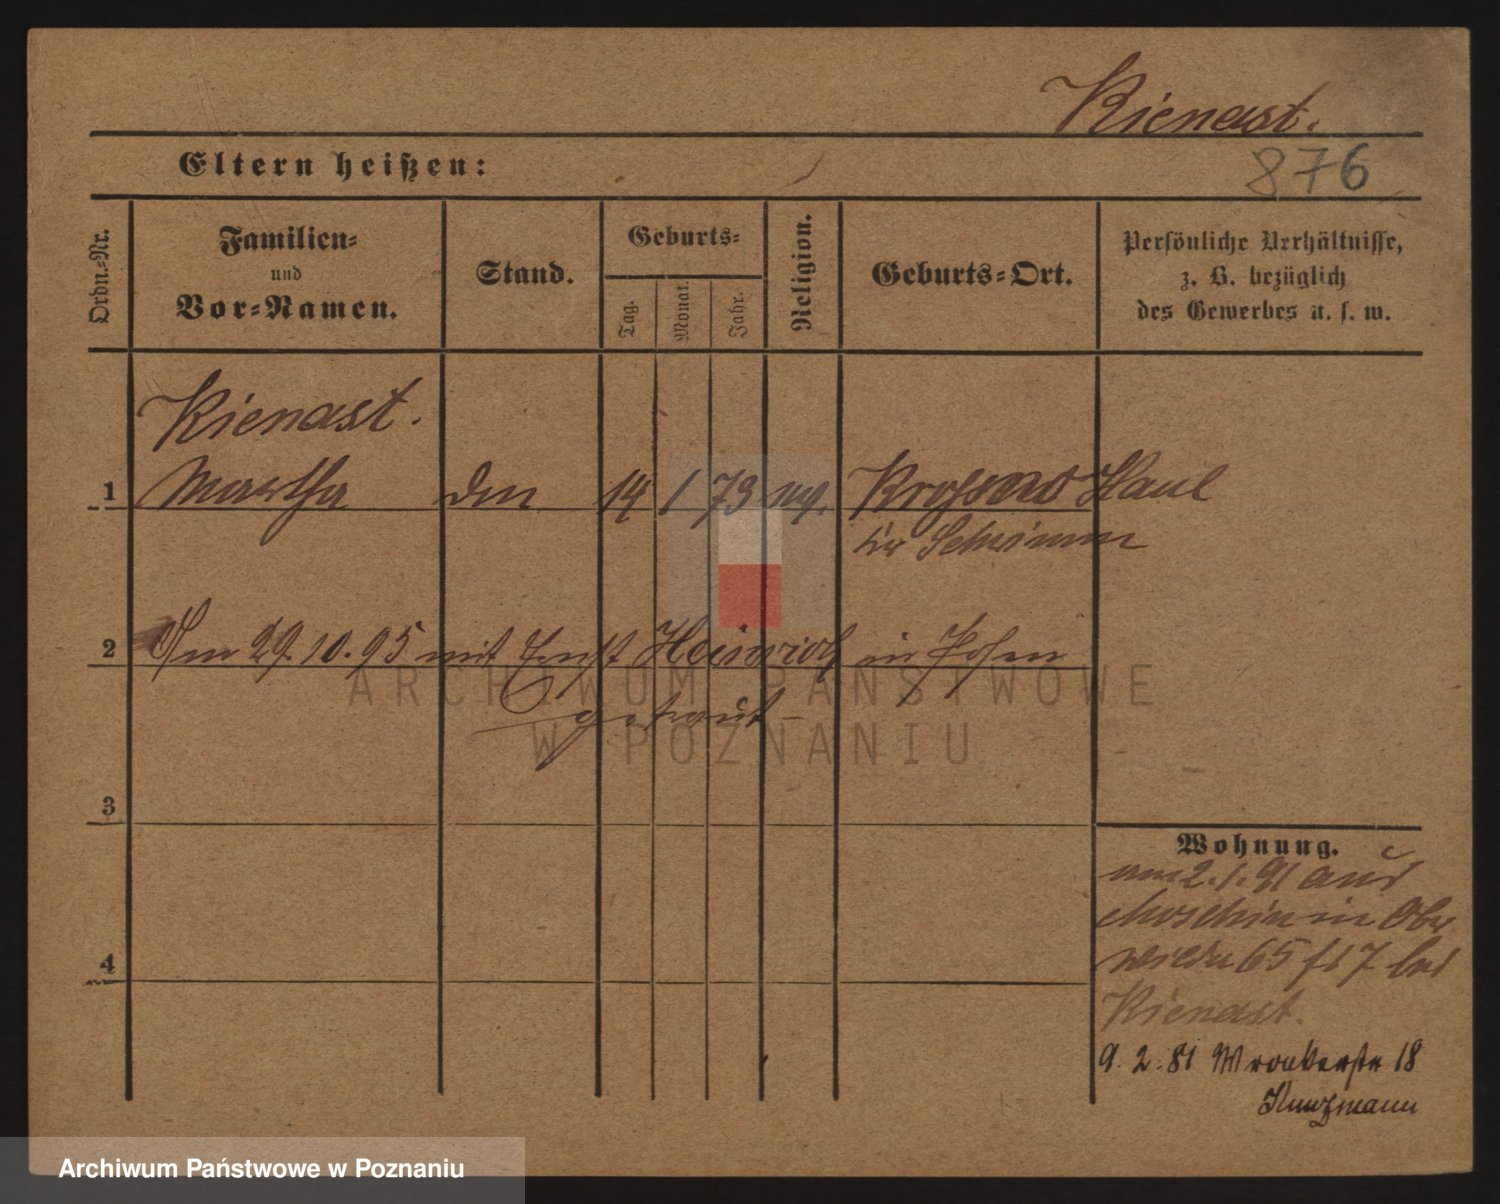 Kienast.
Eltern heißen:
876
Ordn.-Nr.
Familien-
und
Vor-Namen.
Stand.
Geburts-
Tag.
Monat.
Jahr.
Religion.
Geburts-Ort.
Persönliche Verhältnisse,
z. B. bezüglich
des Gewerbes u. s. w.
Kienast.
1 Martha 14 1 73
2 Am 29.10.95 mit Ernst Heinrich in Posen
getraut
3
4
Wohnung.
am 2.1.91 aus
Moschin in Ober
65
Kienast.
9.2.81 Wronkerstr 18
Kunzmann
ARCHIWUM PAŃSTWOWE
W POZNANIU
Archiwum Państwowe w Poznaniu